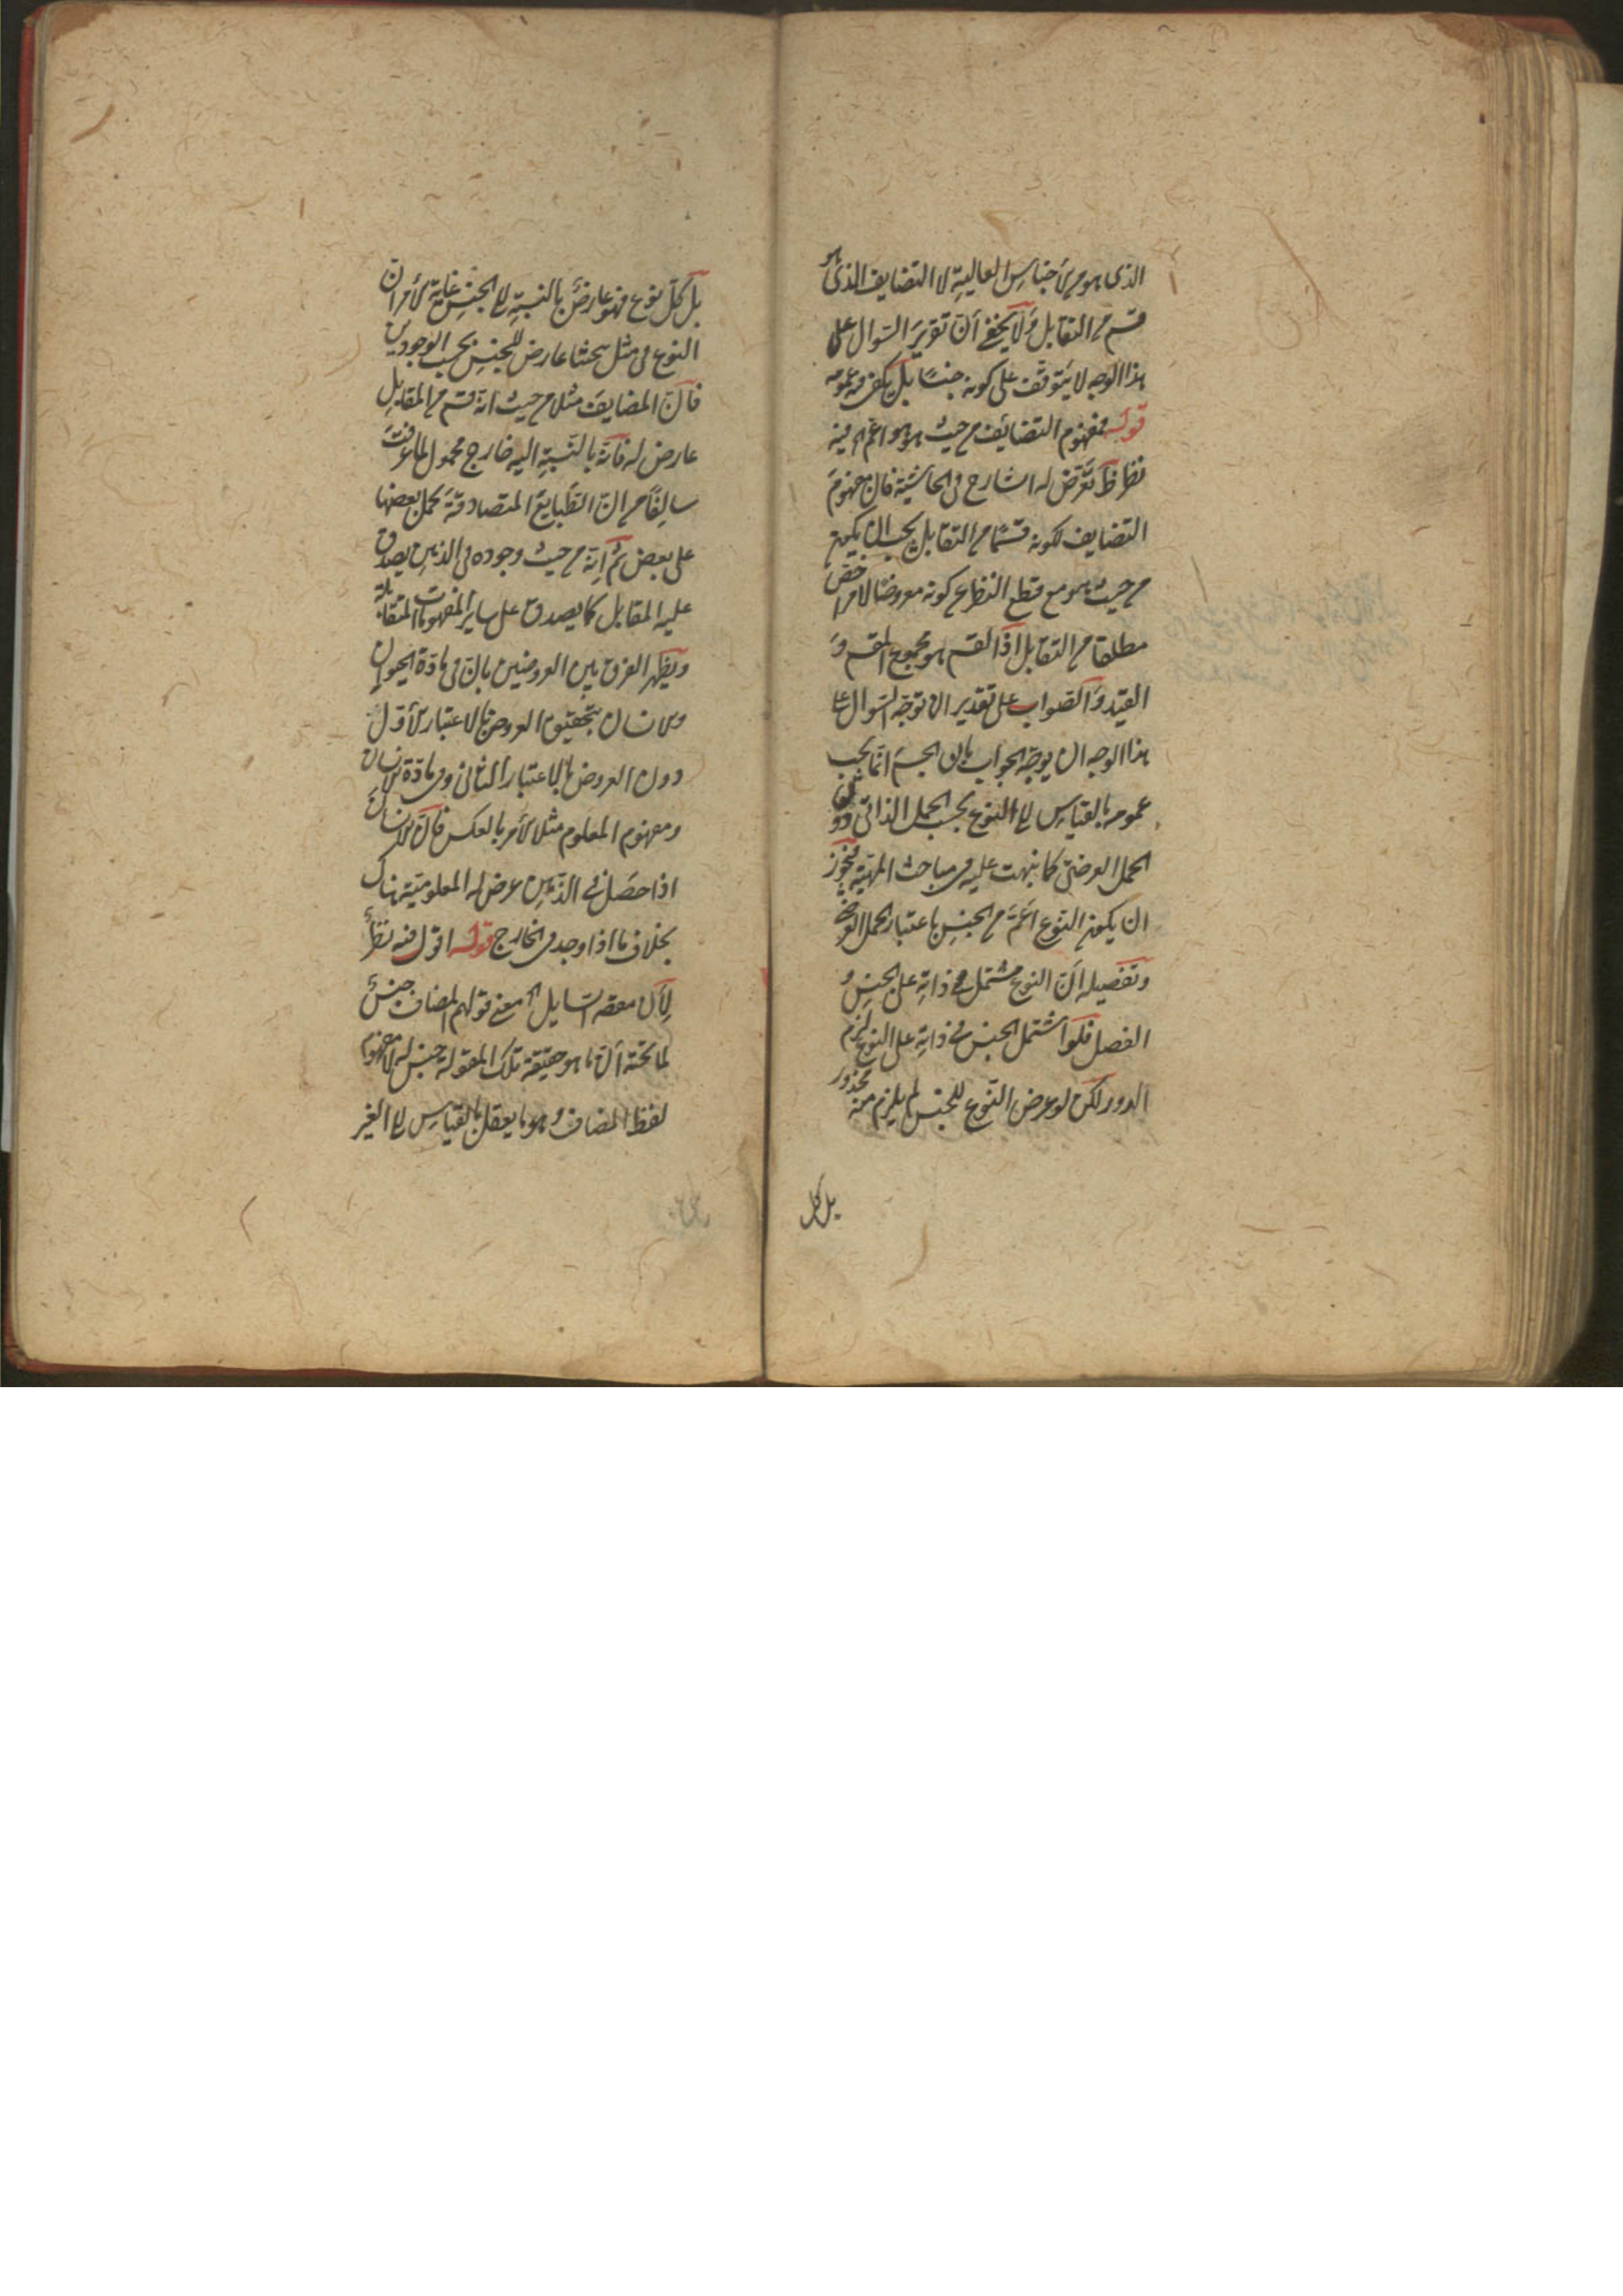 الذى هو من الأجناس العالية لا التضايف الذى هو
قسم من التقابل ولا يخفى أن تقرير السوال على
هذا الوجه لا يتوقف على كونه جنسًا بل يكفى فيه عمومه
قوله فمفهوم التضائف من حيث هو هو اعم الخ فيه
نظر ظ تعرض له الشارح فى الحاشية فان مفهوم
التضايف لكونه قسمًا من التقابل يجب ان يكون
من حيث هو مع قطع النظر عن كونه معروضًا لامر اخص
مطلقا من التقابل اذ القسم هو مجموع المقسم و
القيد والصواب على تقدير ان توجه السوال على
هذا الوجه ان يوجه الجواب بان الجنس انما يجب
عمومه بالقياس الى النوع بحسب الحمل الذاتى دون
الحمل العرضى كما نبهت عليه فى مباحث المهية فيجوز
ان يكون النوع اعم من الجنس باعتبار الحمل العرضى
وتفصيله ان النوع مشتمل فى ذاته على الجنس و
الفصل فلو اشتمل الجنس فى ذاته على النوع لزم
الدور لكن لو عرض النوع للجنس لم يلزم منه محذور
بل كل
بل كل نوع فهو عارض بالنسبة الى الجنس غاية الأمر ان
النوع فى مثل بحثنا عارض للجنس بحسب الوجودين
فان المضايف مثلا من حيث انه قسم من المقابل
عارض له فانه بالنسبة اليه خارج محمول لما عرفت
سالفًا من ان الطبايع المتصادقة يحمل بعضها
على بعض ثم انه من حيث وجوده فى الذهن يصدق
عليه المقابل كما يصدق على ساير المفهومات المتقابلة
ويظهر الفرق بين العروضين بان فى مادة الحيوان
والانسان يتحقق العروض بالاعتبار الأول
دون العروض بالاعتبار الثانى وفى مادة الانسان
ومفهوم المعلوم مثلا الأمر بالعكس فان الانسان
اذا حصل فى الذهن عرض له المعلومية هناك
بخلاف ما اذا وجد فى الخارج قوله اقول فيه نظر
لأن مقصود السايل الخ معنى قولهم المضاف جنس
لما تحته أن ما هو حقيقة تلك المقولة جنس له لا مفهوم
لفظ المضاف وهو ما يعقل بالقياس الى الغير